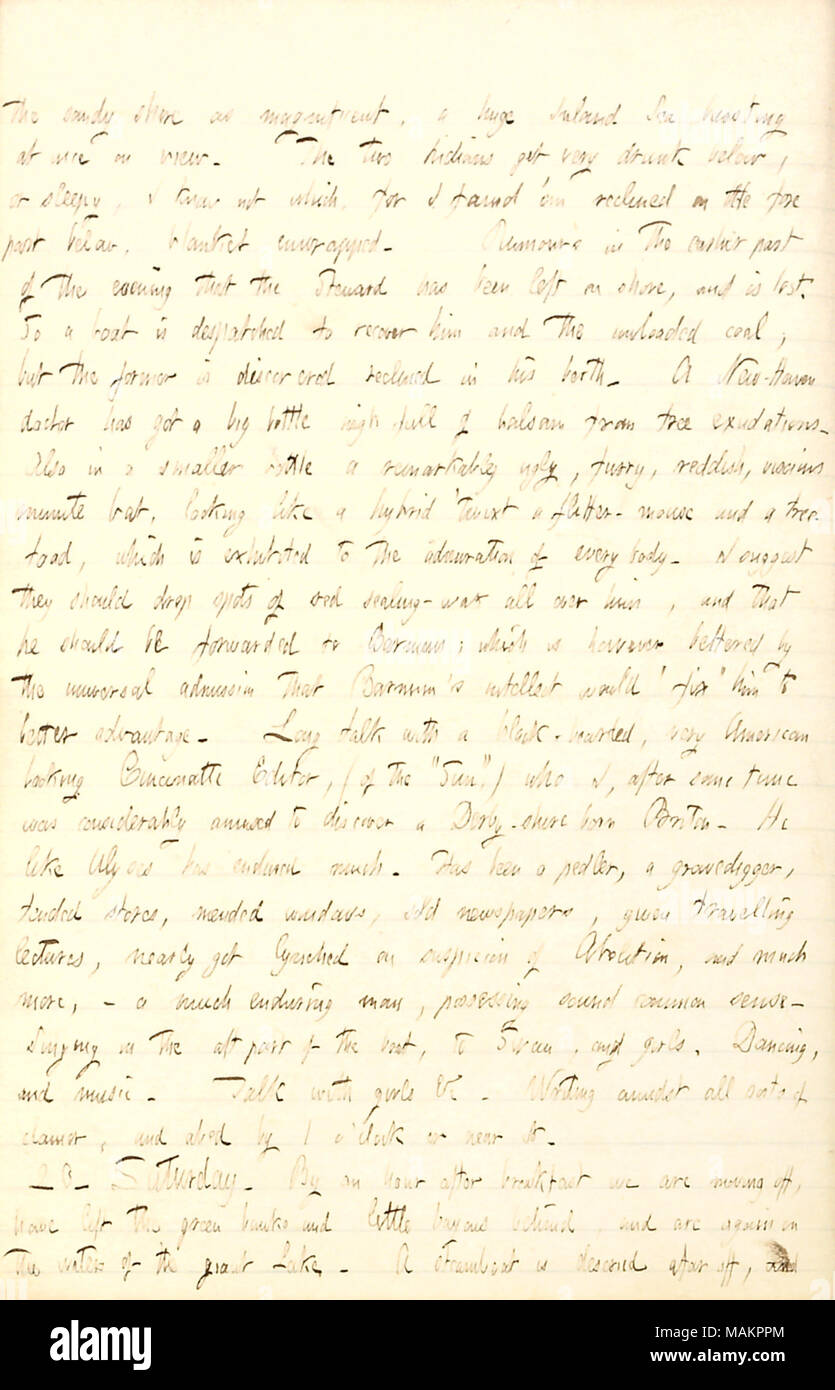 the sandy shore as magnificent, a huge inland sea bursting
at once on view. The two Indians get very drunk below,
or sleepy, I know not which, for I found 'em reclined on the fore
part below, blanket enwrapped. Rumours in the earlier part
of the evening that the Steward has been left on shore, and is lost.
So a boat is despatched to recover him and the unloaded coal,
but the former is discovered reclined in his berth. A New-Haven
doctor has got a big bottle nigh full of balsam from tree exudations.
Also in a smaller bottle a remarkably ugly, furry, reddish, viscious
minute bat, looking like a hybrid 'twixt a flitter-mouse and a tree-
toad, which is exhibited to the admiration of every body. I suggest
they should drop spots of red sealing-wax all over him, and that
he should be forwarded to Barnum; which is however bettered by
the universal admission that Barnum's intellect would "fix" him to
better advantage. Long talk with a black-bearded, very American
looking Cincinatti Editor, (of the "Sun",) who I, after some time
was considerably amused to discover a Derby-shire born Briton. He
like Ulysses has endured much. Has been a pedler, a gravedigger,
tended stores, mended windows, sold newspapers, given travelling
lectures, nearly got lynched on suspicion of Abolition, and much
more, - a much enduring man, possessing sound common sense.
Singing in the aft part of the boat, to Swan, and girls. Dancing,
and music. Talk with girls &c. Writing amidst all sorts of
clamor, and abed by 1 o'clock or near it.
28. Saturday. By an hour after breakfast we are moving off,
have left the green banks and little bayous behind, and are again on
the waters of the giant Lake. A steamboat is descried afar off, and
alamy
Image ID: MAKPPM
www.alamy.com